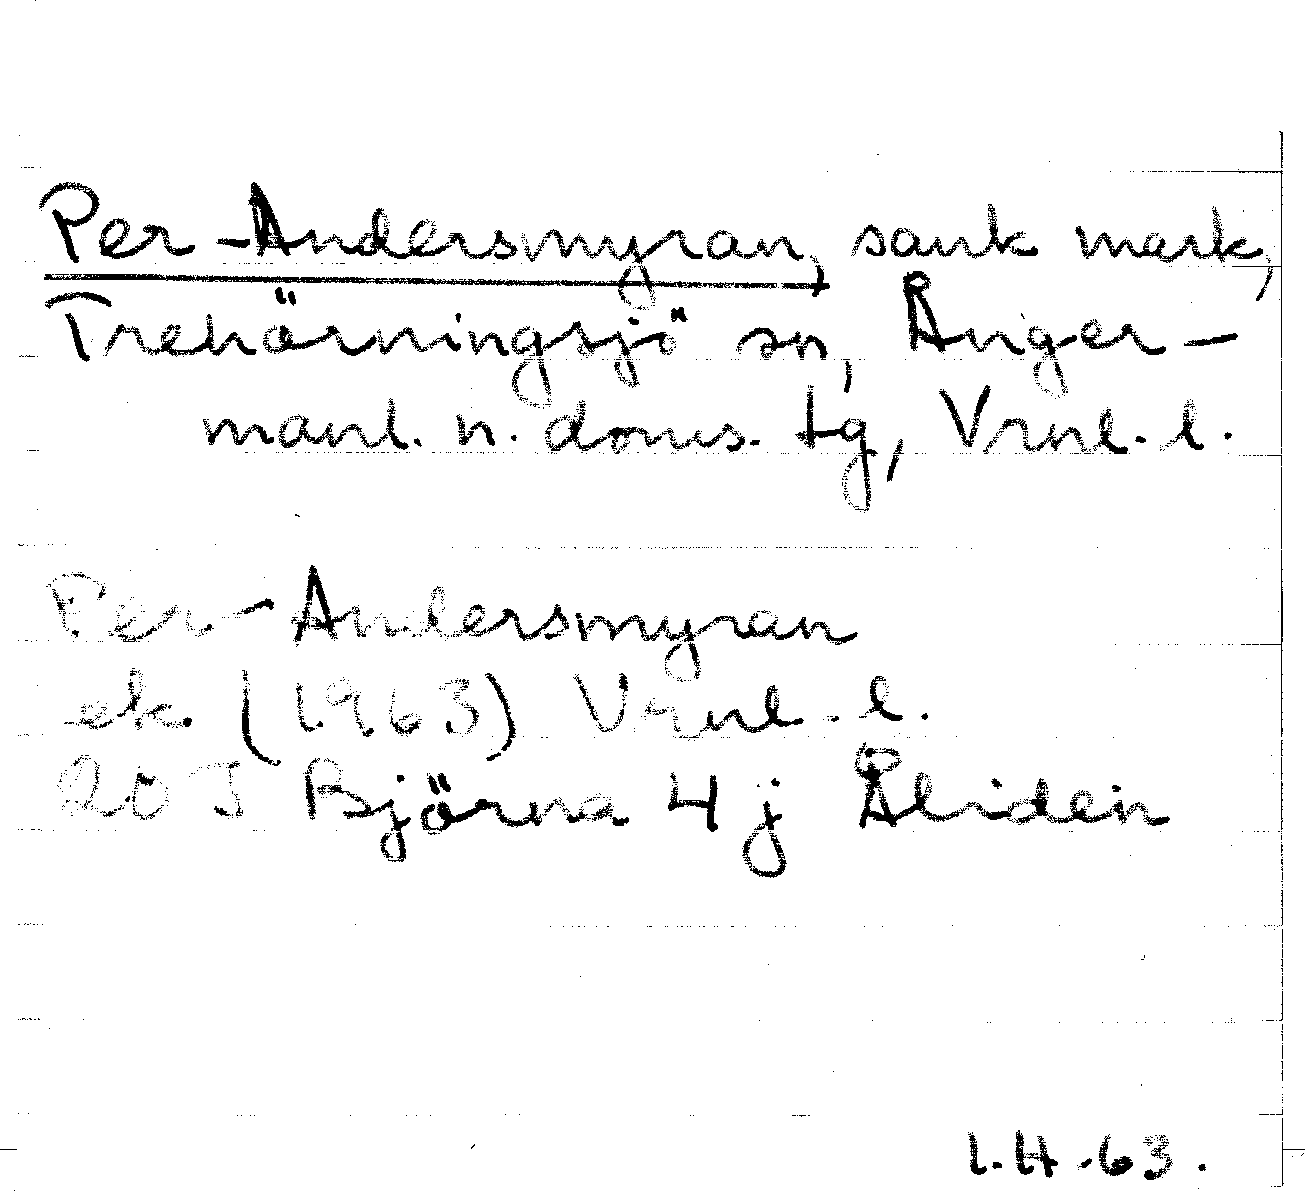 Per-Andersmyran, sank mark,
Trehörningsjö sn, Ånger-
manl. n. doms. tg, Vrnl. l.
Per-Andersmyran
ek. (1963) Vrnl. l.
20 J Björna 4 j Åliden
I.H.63.